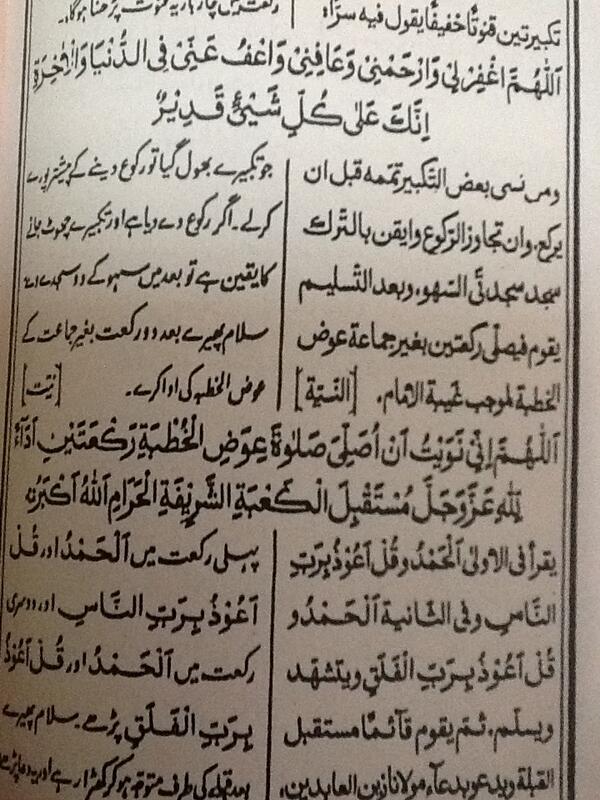 تكبيرتين قنوتًا خفيفًا يقول فيه سرًّا:
اَللّٰهُمَّ اغْفِرْ لِيْ وَارْحَمْنِيْ وَعَافِنِيْ وَاعْفُ عَنِّيْ فِي الدُّنْيَا وَالْاٰخِرَةِ
اِنَّكَ عَلٰى كُلِّ شَيْئٍ قَدِيْرٌ
ومن نسى بعض التكبير تمّمه قبل ان
يركع. وان تجاوز الرّكوع وايقن بالتّرك
سجد سجدتَي السّهو. وبعد التّسليم
يقوم فيصلّى ركعتين بغير جماعة عوض
الخطبة لموجب غيبة الامام. [النّيّة]
جو تکبیرے بھول گیا تو رکوع دینے کے پیشتر پورے
کرلے۔ اگر رکوع دے دیا ہے اور تکبیرے چھوٹ جانے
کا یقین ہے تو بعد میں سہو کے دو سجدے دے
سلام پھیرے بعد دو رکعت بغیر جماعت کے
عوض الخطبہ کی ادا کرے۔ [نیّت]
اَللّٰهُمَّ اِنِّيْ نَوَيْتُ اَنْ اُصَلِّيَ صَلٰوةَ عِوَضِ الْخُطْبَةِ رَكْعَتَيْنِ اَدَآءً
لِلّٰهِ عَزَّ وَجَلَّ مُسْتَقْبِلَ الْكَعْبَةِ الشَّرِيْفَةِ الْحَرَامِ اَللهُ اَكْبَرُ
يقرأ فى الاولىٰ اَلْحَمْدُ وقُلْ اَعُوْذُ بِرَبِّ
النَّاسِ وفى الثانية اَلْحَمْدُ و
قُلْ اَعُوْذُ بِرَبِّ الْفَلَقِ ويتشهّد
ويسلّم. ثمّ يقوم قآئمًا مستقبل
القبلة ويدعو بدعآء مولانا زين العابدين:
پہلی رکعت میں اَلْحَمْدُ اور قُلْ
اَعُوْذُ بِرَبِّ النَّاسِ اور دوسری
رکعت میں اَلْحَمْدُ اور قُلْ اَعُوْذُ
بِرَبِّ الْفَلَقِ پڑھے۔ سلام پھیرے
بعد قبلے کی طرف متوجہ ہو کر کھڑا رہے اور یہ دعا پڑھے